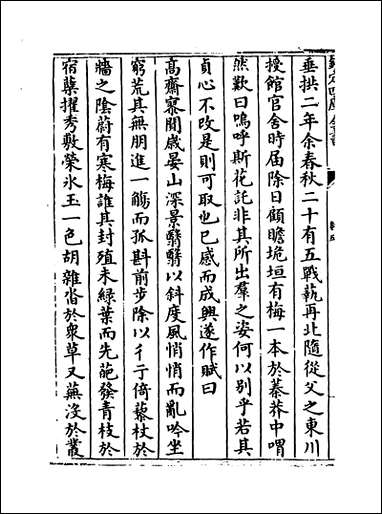 欽定四庫全書
垂拱二年余春秋二十有五戰蓺再北隨從父之東川
授館官舍時届除日顧瞻圮垣有梅一本於蓁莽中喟
然歎曰嗚呼斯花託非其所出羣之姿何以别乎若其
貞心不改是則可取也已感而成興遂作賦曰
髙齋寥閴歳晏山深景翳翳以斜度風悄悄而亂吟坐
窮荒其無朋進一觴而孤斟前步除以彳亍倚藜杖於
牆之隂蔚有寒梅誰其封殖未緑葉而先葩發青枝於
宿蘖擢秀敷榮氷玉一色胡雜沓於衆草又蕪沒於叢